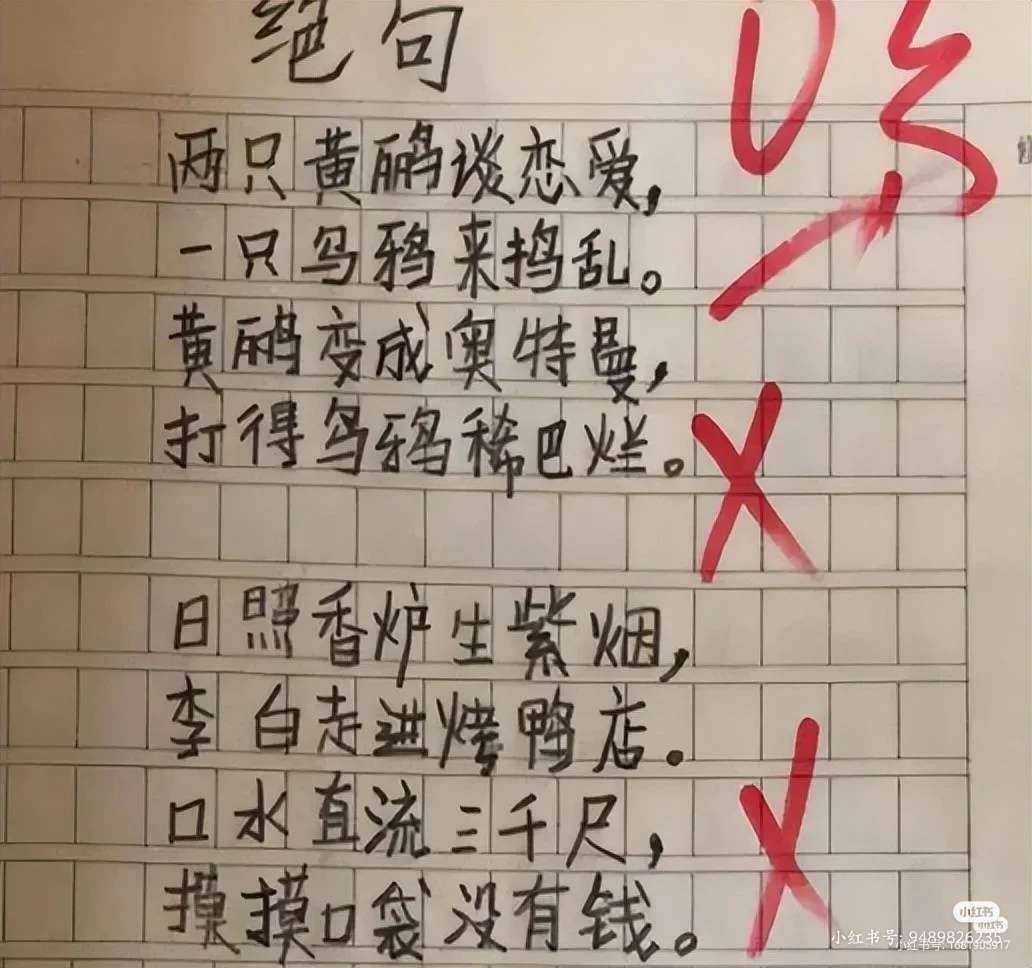 绝句
两只黄鹂谈恋爱,
一只乌鸦来捣乱。
黄鹂变成奥特曼,
打得乌鸦稀巴烂。
日照香炉生紫烟,
李白走进烤鸭店。
口水直流三千尺,
摸摸口袋没有钱。
小红书
小红书
小红书号: 9489826235
小红书号: 1681903917